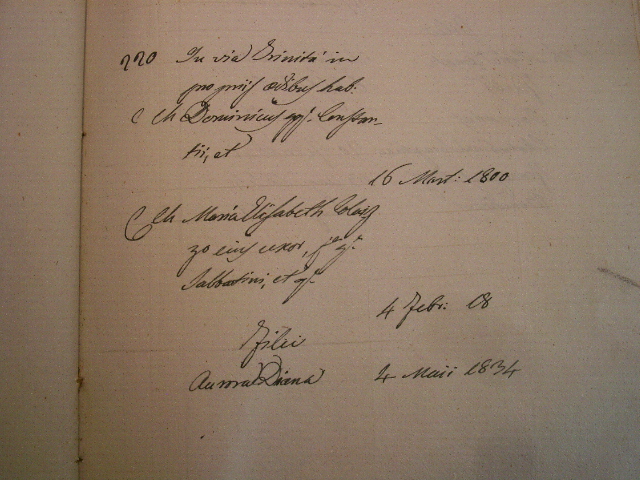 220 In via Trinità in
propriis ædibus hab:
C Ch Dominicus qp. Constan-
tii, et
16 Mart: 1800
C Ch Maria Elisabeth
zo ejus uxor, f. q.
Sabbatini, et q.
4 Febr: 08
Filii
Aurora Diana 4 Maii 1834